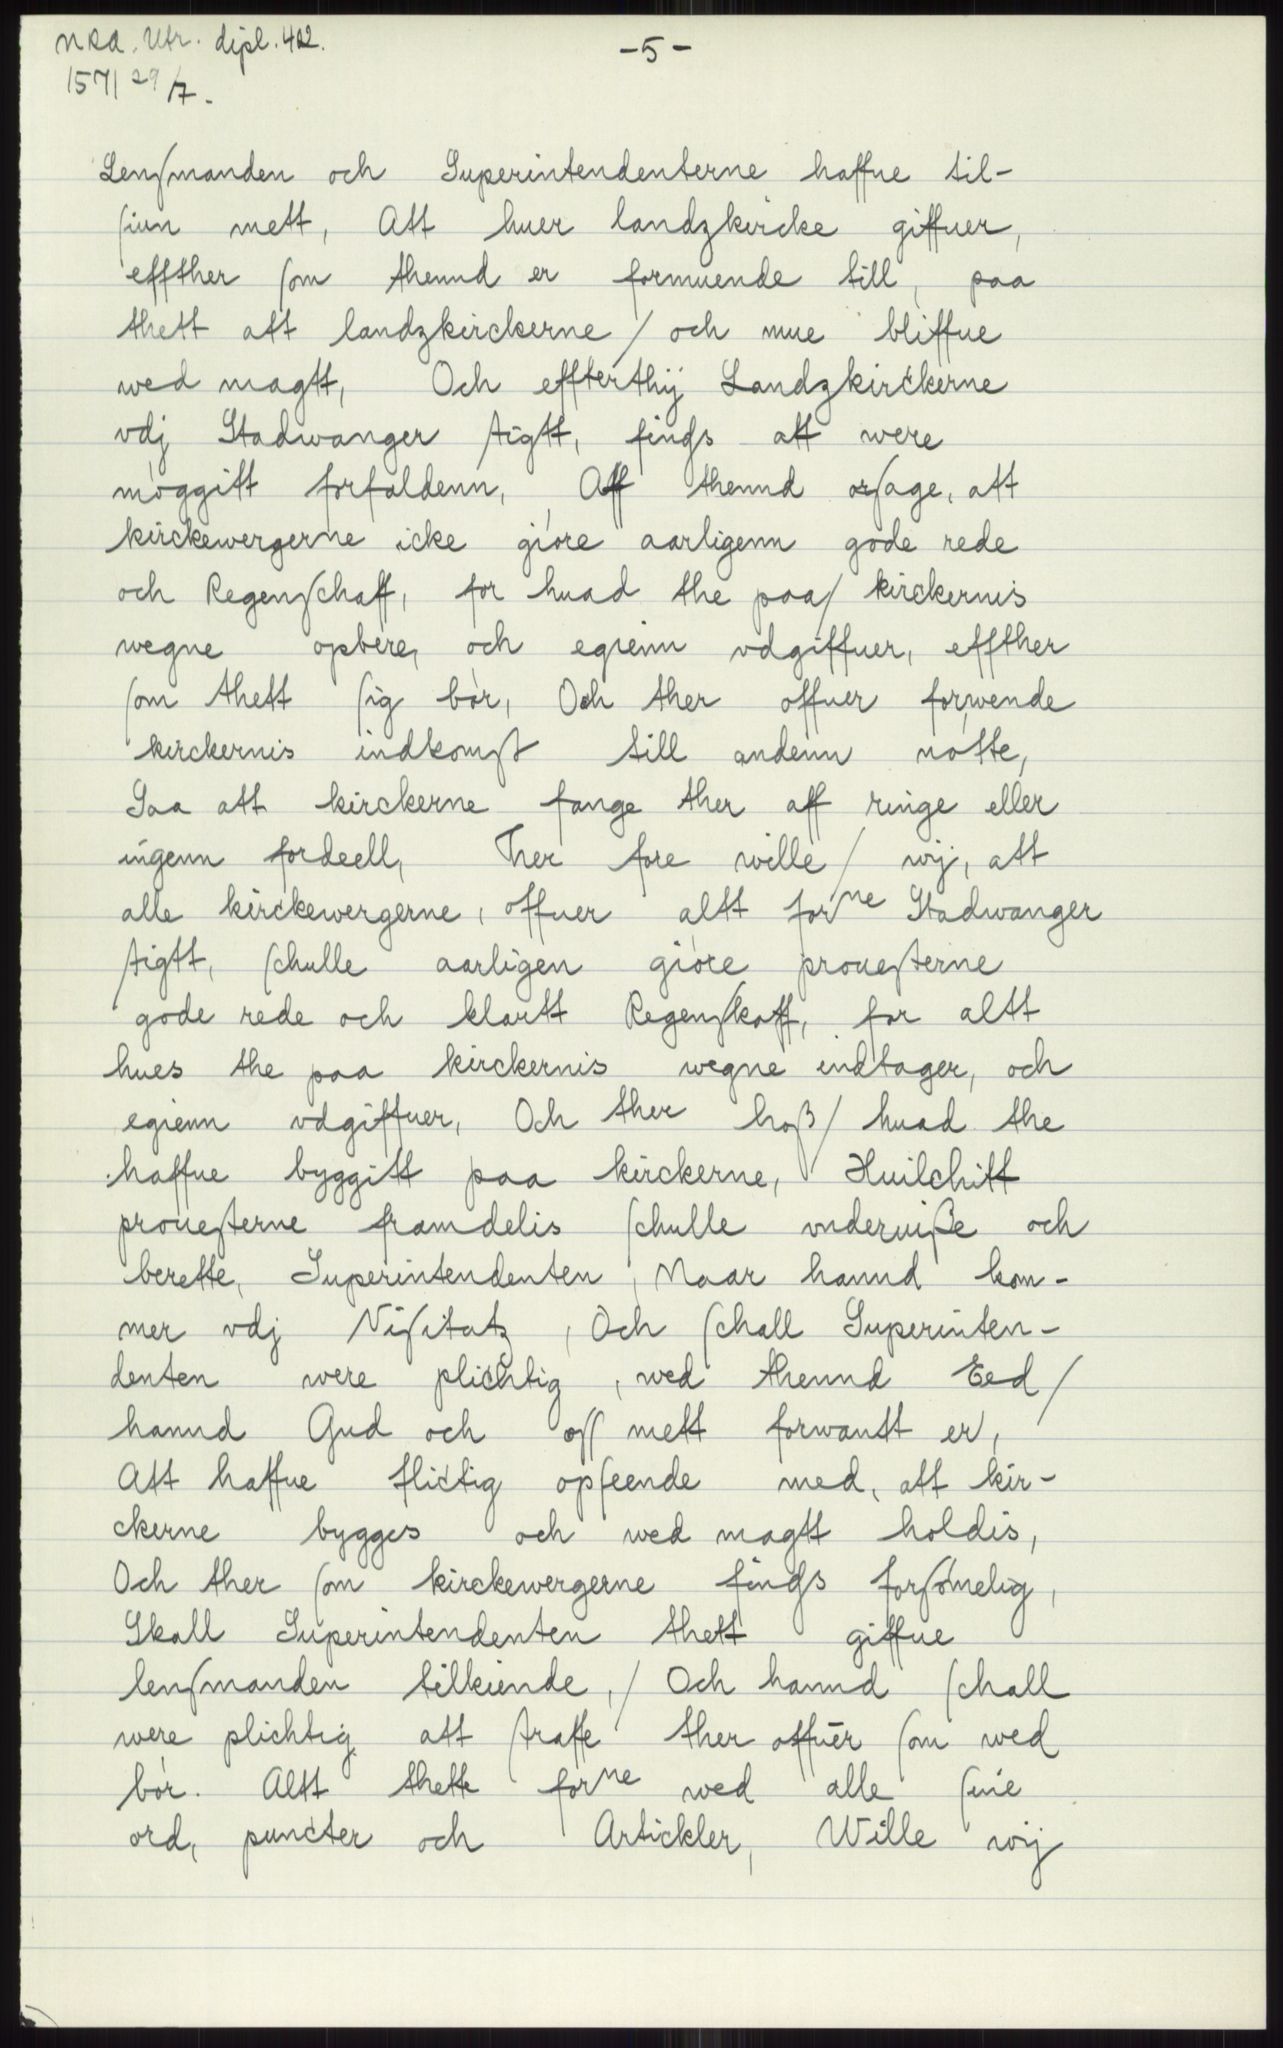 NRA. Utr. dipl. 402.
-5-
1571 29/7.
Lenſmanden och Superintendenterne haffue til-
ſiun mett, Att huer landzkircke giffuer,
effther ſom thennd er formuende till, paa
thett att landzkirckerne / och mue bliffue
wed magtt, Och effterthij Landzkirckerne
vdj Stadwanger ſtigtt, findſs att were
møggitt forfaldenn, Aff thennd orſage, att
kirckewergerne icke giøre aarligenn gode rede
och Regenſchaff, for huad the paa / kirckernis
wegne opbere, och egienn vdgiffuer, effther
ſom thett ſig bør, Och ther offuer forwende
kirckernis indkomſt till andenn nøtte,
Saa att kirckerne fange ther aff ringe eller
ingenn fordeell, Ther fore wille / wij, att
alle kirckewergerne, offuer altt forne Stadwanger
ſtigtt, ſchulle aarligen giøre proueſterne
gode rede och klartt Regenſkaff, for altt
hues the paa kirckernis wegne indtager, och
egienn vdgiffuer, Och ther hoß / huad the
haffue byggitt paa kirckerne, Huilchitt
proueſterne framdelis ſchulle vnderuiße och
berette, Superintendenten, Naar hannd kom-
mer vdj Viſitatz, Och ſchall Superinten-
denten were plichtig, wed thennd Eed /
hannd Gud och oſſ mett forwantt er,
Att haffue flictig opſeende med, att kir-
ckerne bygges och wed magtt holdis,
Och ther ſom kirckewergerne findſs forſømelig,
Skall Superintendenten thett giffue
lenſmanden tilkiende, / Och hannd ſchall
were plichtig att ſtraffe ther offuer ſom wed
bør. Altt thette forne wed alle ſine
ord, puncter och Artickler, Wille wij